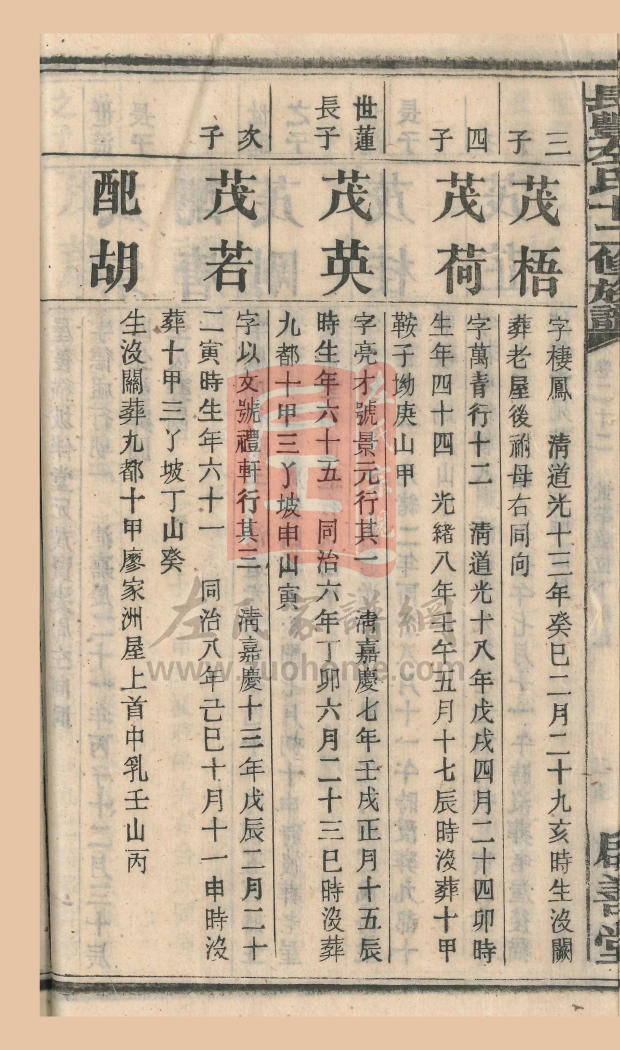 長豐左氏十二修族譜
啟善堂
三子
茂梧
字棲鳳 清道光十三年癸巳二月二十九亥時生沒闕
葬老屋後祔母右同向
四子
茂荷
字萬青行十二 清道光十八年戊戌四月二十四卯時
生年四十四 光緒八年壬午五月十七辰時沒葬十甲
鞍子坳庚山甲
世蓮長子
茂英
字亮才號景元行其一 清嘉慶七年壬戌正月十五辰
時生年六十五 同治六年丁卯六月二十三巳時沒葬
九都十甲三丫坡申山寅
次子
茂若
字以文號禮軒行其三 清嘉慶十三年戊辰二月二十
二寅時生年六十一 同治八年己巳十月十一申時沒
葬十甲三丫坡丁山癸
配胡
生沒闕葬九都十甲廖家洲屋上首中乳壬山丙
左氏家譜網
www.zuohome.com